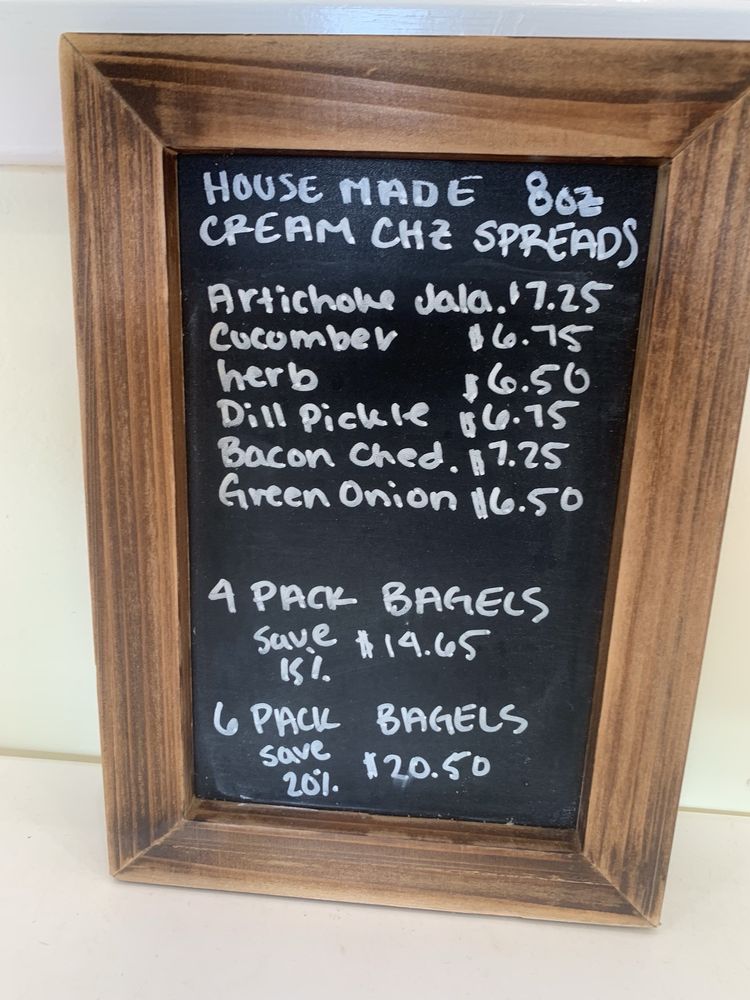 HOUSE MADE 8oz
CREAM CHZ SPREADS
Artichoke Jala. $7.25
Cucomber $6.75
herb $6.50
Dill Pickle $6.75
Bacon Ched. $7.25
Green Onion $6.50
4 PACK BAGELS
save $14.65
15%
6 PACK BAGELS
save $20.50
20%